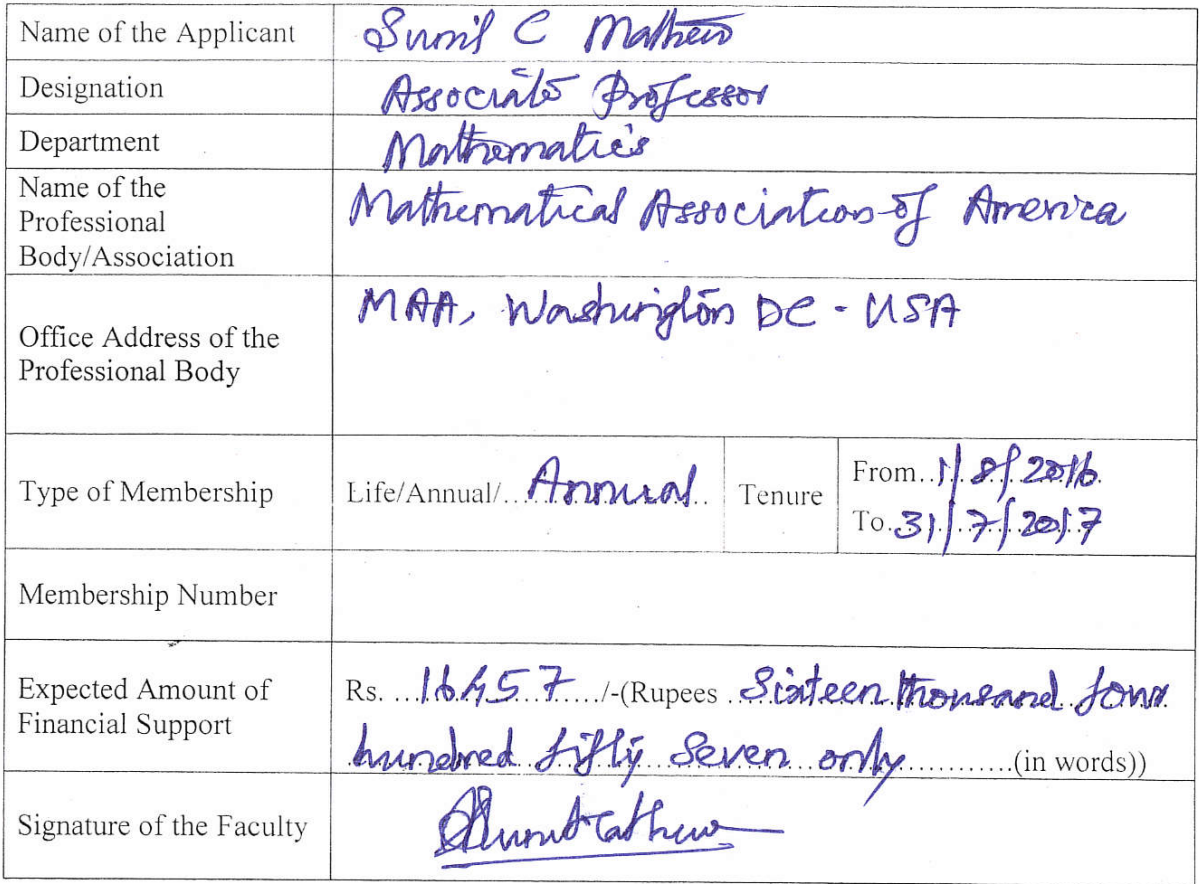 Name of the Applicant Sunil C Mathew
Designation Associate Professor
Department Mathematics
Name of the
Professional
Body/Association
Mathematical Association of America
Office Address of the
Professional Body
MAA, Washington DC - USA
Type of Membership Life/Annual/...Annual.. Tenure
From..1/8/2016.
To.31/7/2017
Membership Number
Expected Amount of
Financial Support
Rs. ...16457..../-(Rupees ..Sixteen thousand four
hundred fifty Seven only............(in words))
Signature of the Faculty